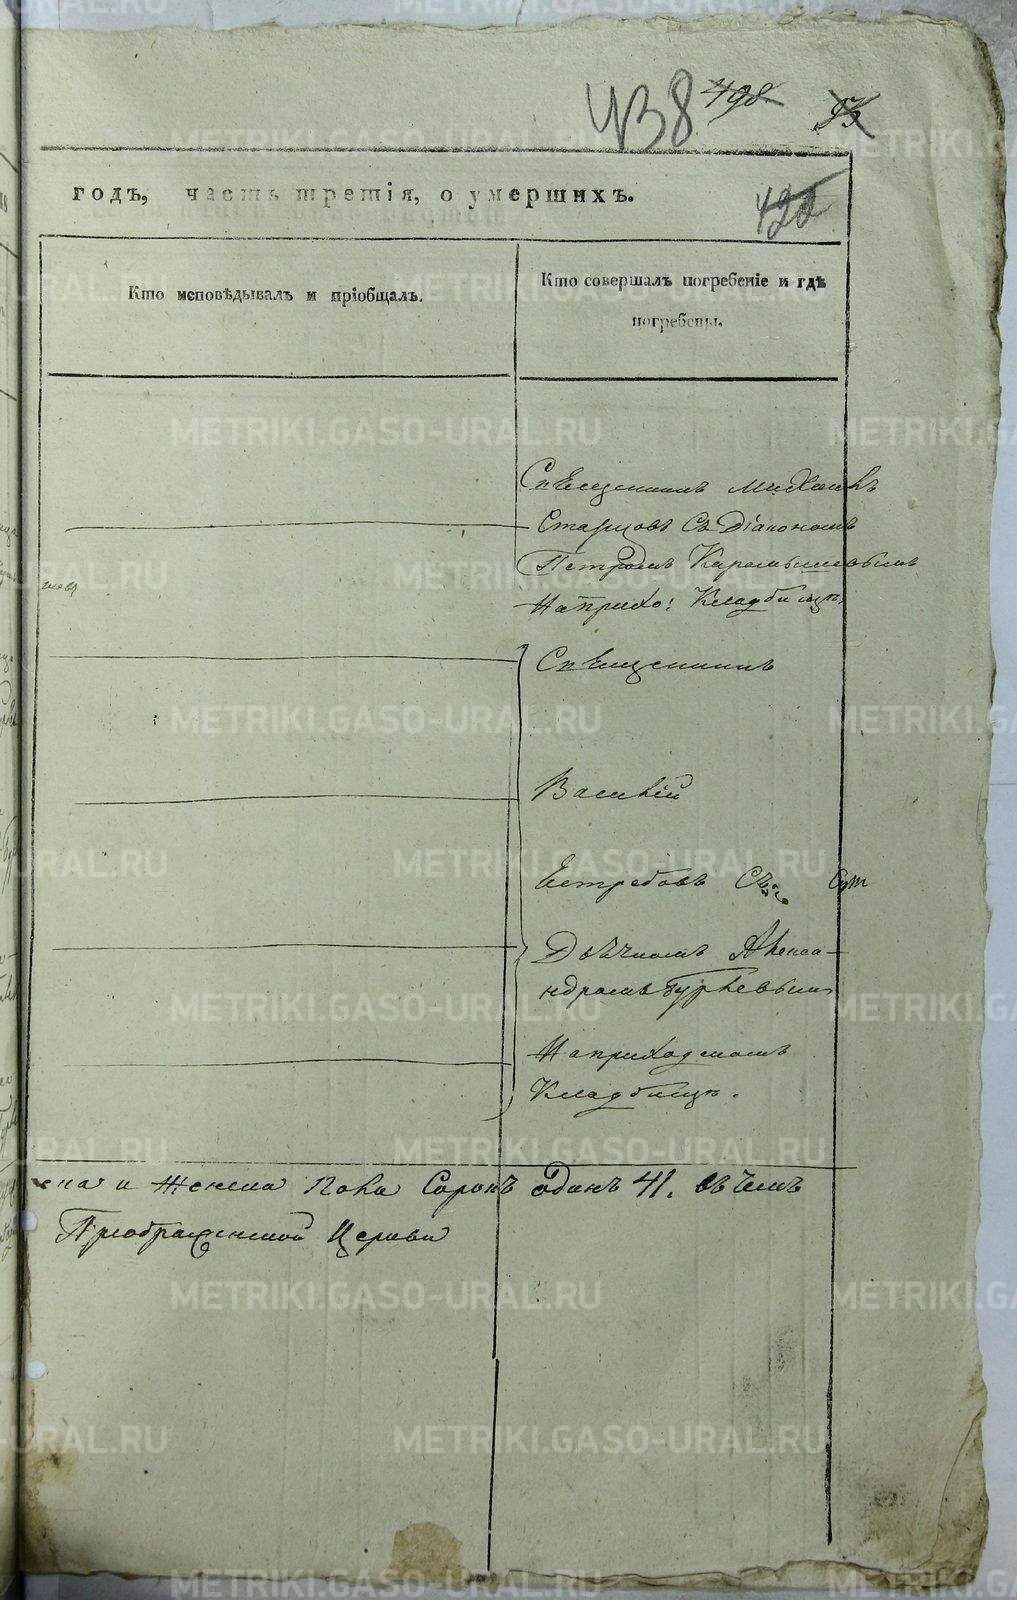 438 498 53
годъ, часть третія, о умершихъ.
420
Кто исповѣдывалъ и пріобщалъ.
Кто совершалъ погребеніе и гдѣ
погребены.
Священникъ Михаилъ
Старцовъ Съ Діакономъ
Петромъ
На прихо: Кладбищѣ
Священникъ
Василій
Ястребовъ Съ
Дьячкомъ Алекса-
ндромъ Гурьевымъ
На приходскомъ
Кладбищѣ.
и Женска Пола Сорокъ одинъ 41. въ чемъ
Преображенской Церкви
METRIKI.GASO-URAL.RU